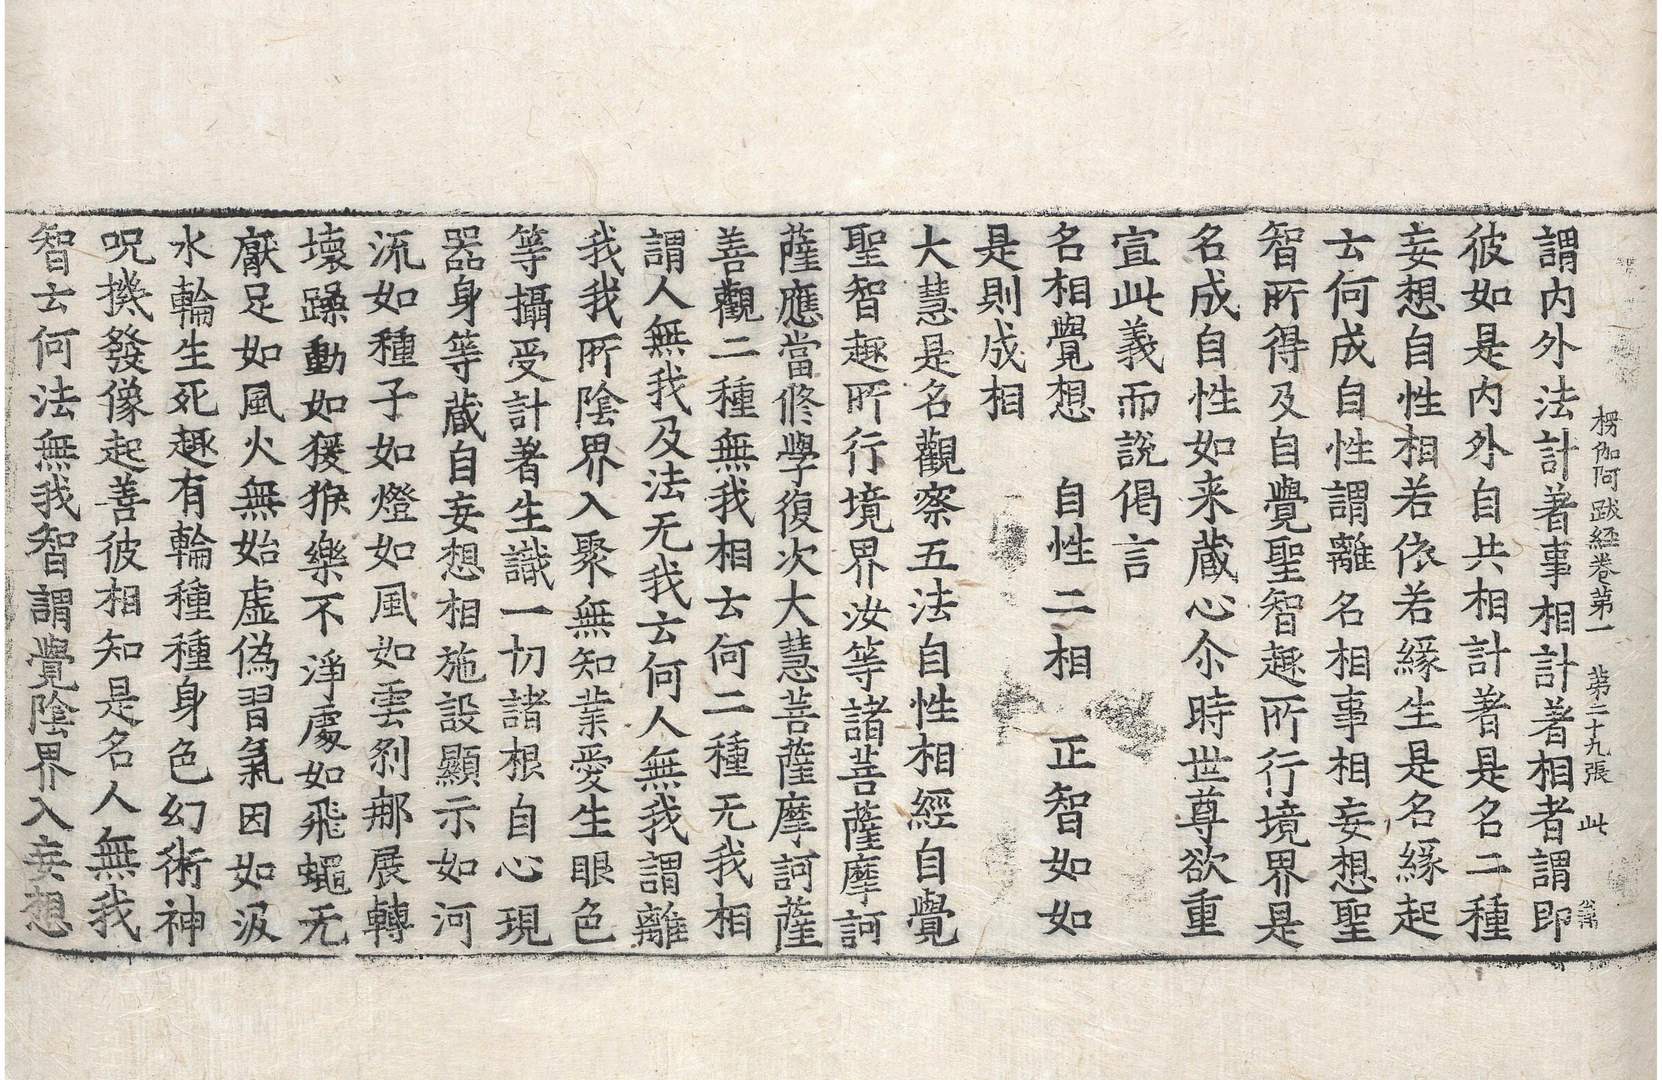 楞伽阿跋経卷第一　第二十九張　此
謂内外法計著事相計著相者謂即
彼如是内外自共相計著是名二種
妄想自性相若依若緣生是名緣起
云何成自性謂離名相事相妄想聖
智所得及自覺聖智趣所行境界是
名成自性如来蔵心尒時世尊欲重
宣此義而説偈言
名相覺想　自性二相　正智如如
是則成相
大慧是名觀察五法自性相經自覺
聖智趣所行境界汝等諸菩薩摩訶
薩應當修學復次大慧菩薩摩訶薩
善觀二種無我相云何二種无我相
謂人無我及法无我云何人無我謂離
我我所陰界入聚無知業愛生眼色
等攝受計著生識一切諸根自心現
器身等蔵自妄想相施設顯示如河
流如種子如燈如風如雲刹𨙻展轉
壞躁動如猨猴樂不淨處如飛蠅无
厭足如風火無始虛偽習氣因如汲
水輪生死趣有輪種種身色幻術神
呪機發像起善彼相知是名人無我
智云何法無我智謂覺陰界入妄想